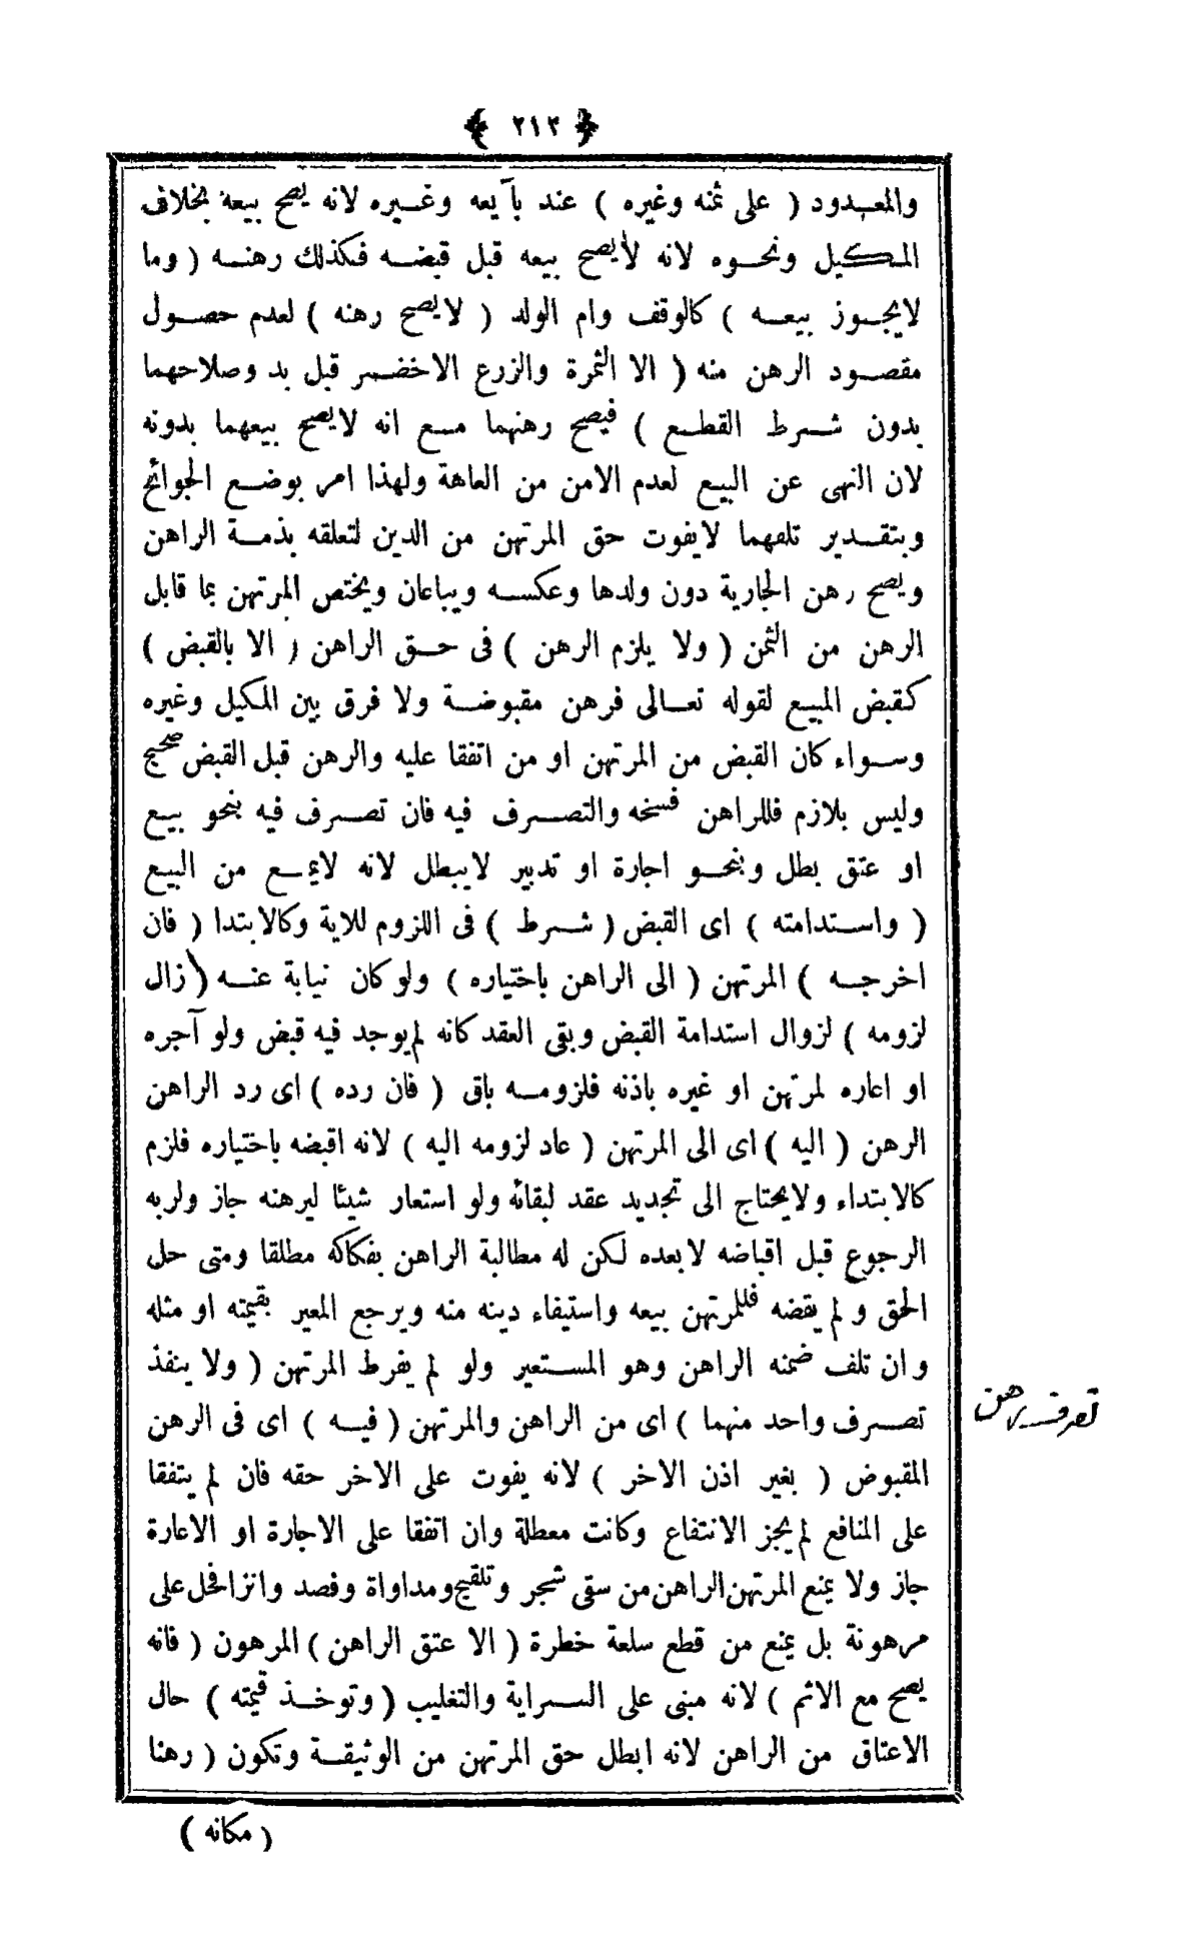 ﴿ ٢١٢ ﴾
والمعدود ( على ثمنه وغيره ) عند بآيعه وغيره لانه يصح بيعه بخلاف
المكيل ونحوه لانه لايصح بيعه قبل قبضه فكذلك رهنه ( وما
لايجوز بيعه ) كالوقف وام الولد ( لايصح رهنه ) لعدم حصول
مقصود الرهن منه ( الا الثمرة والزرع الاخضر قبل بد وصلاحهما
بدون شرط القطع ) فيصح رهنهما مع انه لايصح بيعهما بدونه
لان النهى عن البيع لعدم الامن من العاهة ولهذا امر بوضع الجوائح
وبتقدير تلفهما لايفوت حق المرتهن من الدين لتعلقه بذمة الراهن
ويصح رهن الجارية دون ولدها وعكسه ويباعان ويختص المرتهن بما قابل
الرهن من الثمن ( ولا يلزم الرهن ) فى حق الراهن ( الا بالقبض )
كقبض المبيع لقوله تعالى فرهن مقبوضة ولا فرق بين المكيل وغيره
وسواء كان القبض من المرتهن او من اتفقا عليه والرهن قبل القبض صحيح
وليس بلازم فللراهن فسخه والتصرف فيه فان تصرف فيه بنحو بيع
او عتق بطل وبنحو اجارة او تدبير لايبطل لانه لايمنع من البيع
( واستدامته ) اى القبض ( شرط ) فى اللزوم للاية وكالابتدا ( فان
اخرجه ) المرتهن ( الى الراهن باختياره ) ولو كان نيابة عنه ( زال
لزومه ) لزوال استدامة القبض وبقى العقد كانه لم يوجد فيه قبض ولو آجره
او اعاره لمرتهن او غيره باذنه فلزومه باق ( فان رده ) اى رد الراهن
الرهن ( اليه ) اى الى المرتهن ( عاد لزومه اليه ) لانه اقبضه باختياره فلزم
كالابتداء ولايحتاج الى تجديد عقد لبقائه ولو استعار شيئا ليرهنه جاز ولربه
الرجوع قبل اقباضه لابعده لكن له مطالبة الراهن بفكاكه مطلقا ومتى حل
الحق ولم يقضه فللمرتهن بيعه واستيفاء دينه منه ويرجع المعير بقيمته او مثله
وان تلف ضمنه الراهن وهو المستعير ولو لم يفرط المرتهن ( ولا ينفذ
تصرف واحد منهما ) اى من الراهن والمرتهن ( فيه ) اى فى الرهن
تصرف راهن
المقبوض ( بغير اذن الاخر ) لانه يفوت على الاخر حقه فان لم يتفقا
على المنافع لم يجز الانتفاع وكانت معطلة وان اتفقا على الاجارة او الاعارة
جاز ولا يمنع المرتهن الراهن من سقى شجر وتلقيح ومداواة وفصد وانزا فحل على
مرهونة بل يمنع من قطع سلعة خطرة ( الا عتق الراهن ) المرهون ( فانه
يصح مع الاثم ) لانه مبنى على السراية والتغليب ( وتوخذ قيمته ) حال
الاعتاق من الراهن لانه ابطل حق المرتهن من الوثيقة وتكون ( رهنا
( مكانه )